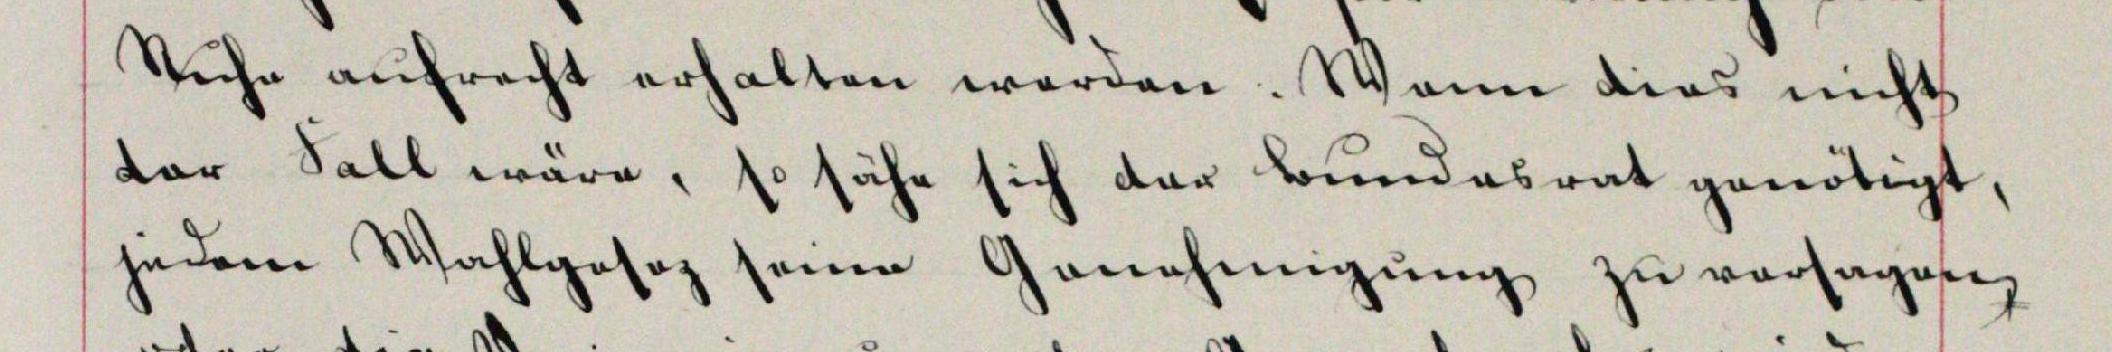 Ruhe aufrecht erhalten werden. Wenn dies nicht
der Fall wäre, so sähe sich der Bundesrat genötigt,
jedem Wahlgesez seine Genehmigung zu versagen,